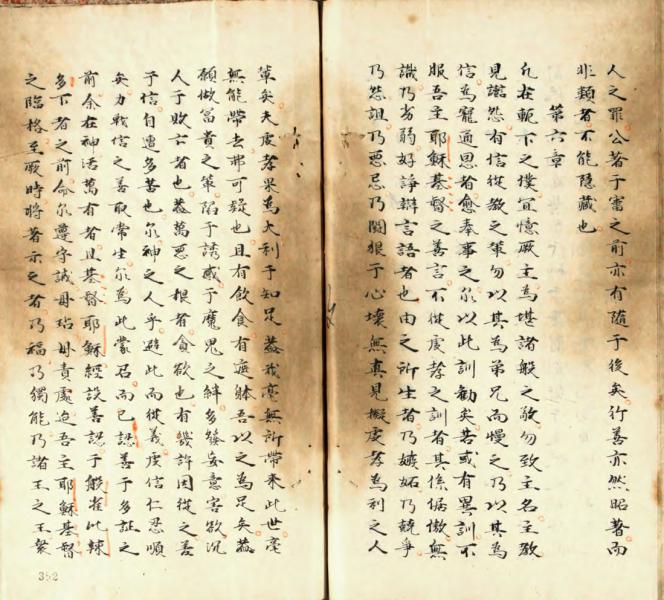 人之罪公著于審之前亦有隨于後矣行善亦然昭著而
非類者不能隐藏也
第六章
凡在軛下之僕宜憶厥主為堪諸般之敬勿致主名主教
見謗怨有信從教之輩勿以其為弟兄而慢之乃以其為
信為寵通恩者愈奉事之尔以此訓勸矣若或有異訓不
服吾主耶穌基督之善言不從虔孝之訓者其係倨傲無
識乃劣弱好諍辯言語者也由之所生者乃嫉妬乃兢爭
乃怨詛乃悪忌乃鬬狠于心壊無真見擬虔孝為利之人
輩矣夫虔孝果為大利于知足葢我毫無所帶來此世毫
無能帶去弗可疑也且有飲食有遮躰吾以之為足矣葢
願做冨貴之輩陷于誘感于魔鬼之絆多䓁妄意害欲沉
人于敗亡者也葢萬悪之根者貪欲也有幾許因從之善
于信自遭多苦也尔神之人乎避此而從義虔信仁忍順
矣力戦信之善取常生尔為此蒙召而已認善于多証之
前余在神活萬有者且基督耶穌經談善認于般雀比辣
多下者之前命尔遵守誡毋玷毋責處迨吾主耶穌基督
之臨格至厥時將著示之者乃福乃獨能乃諸王之王衆
352